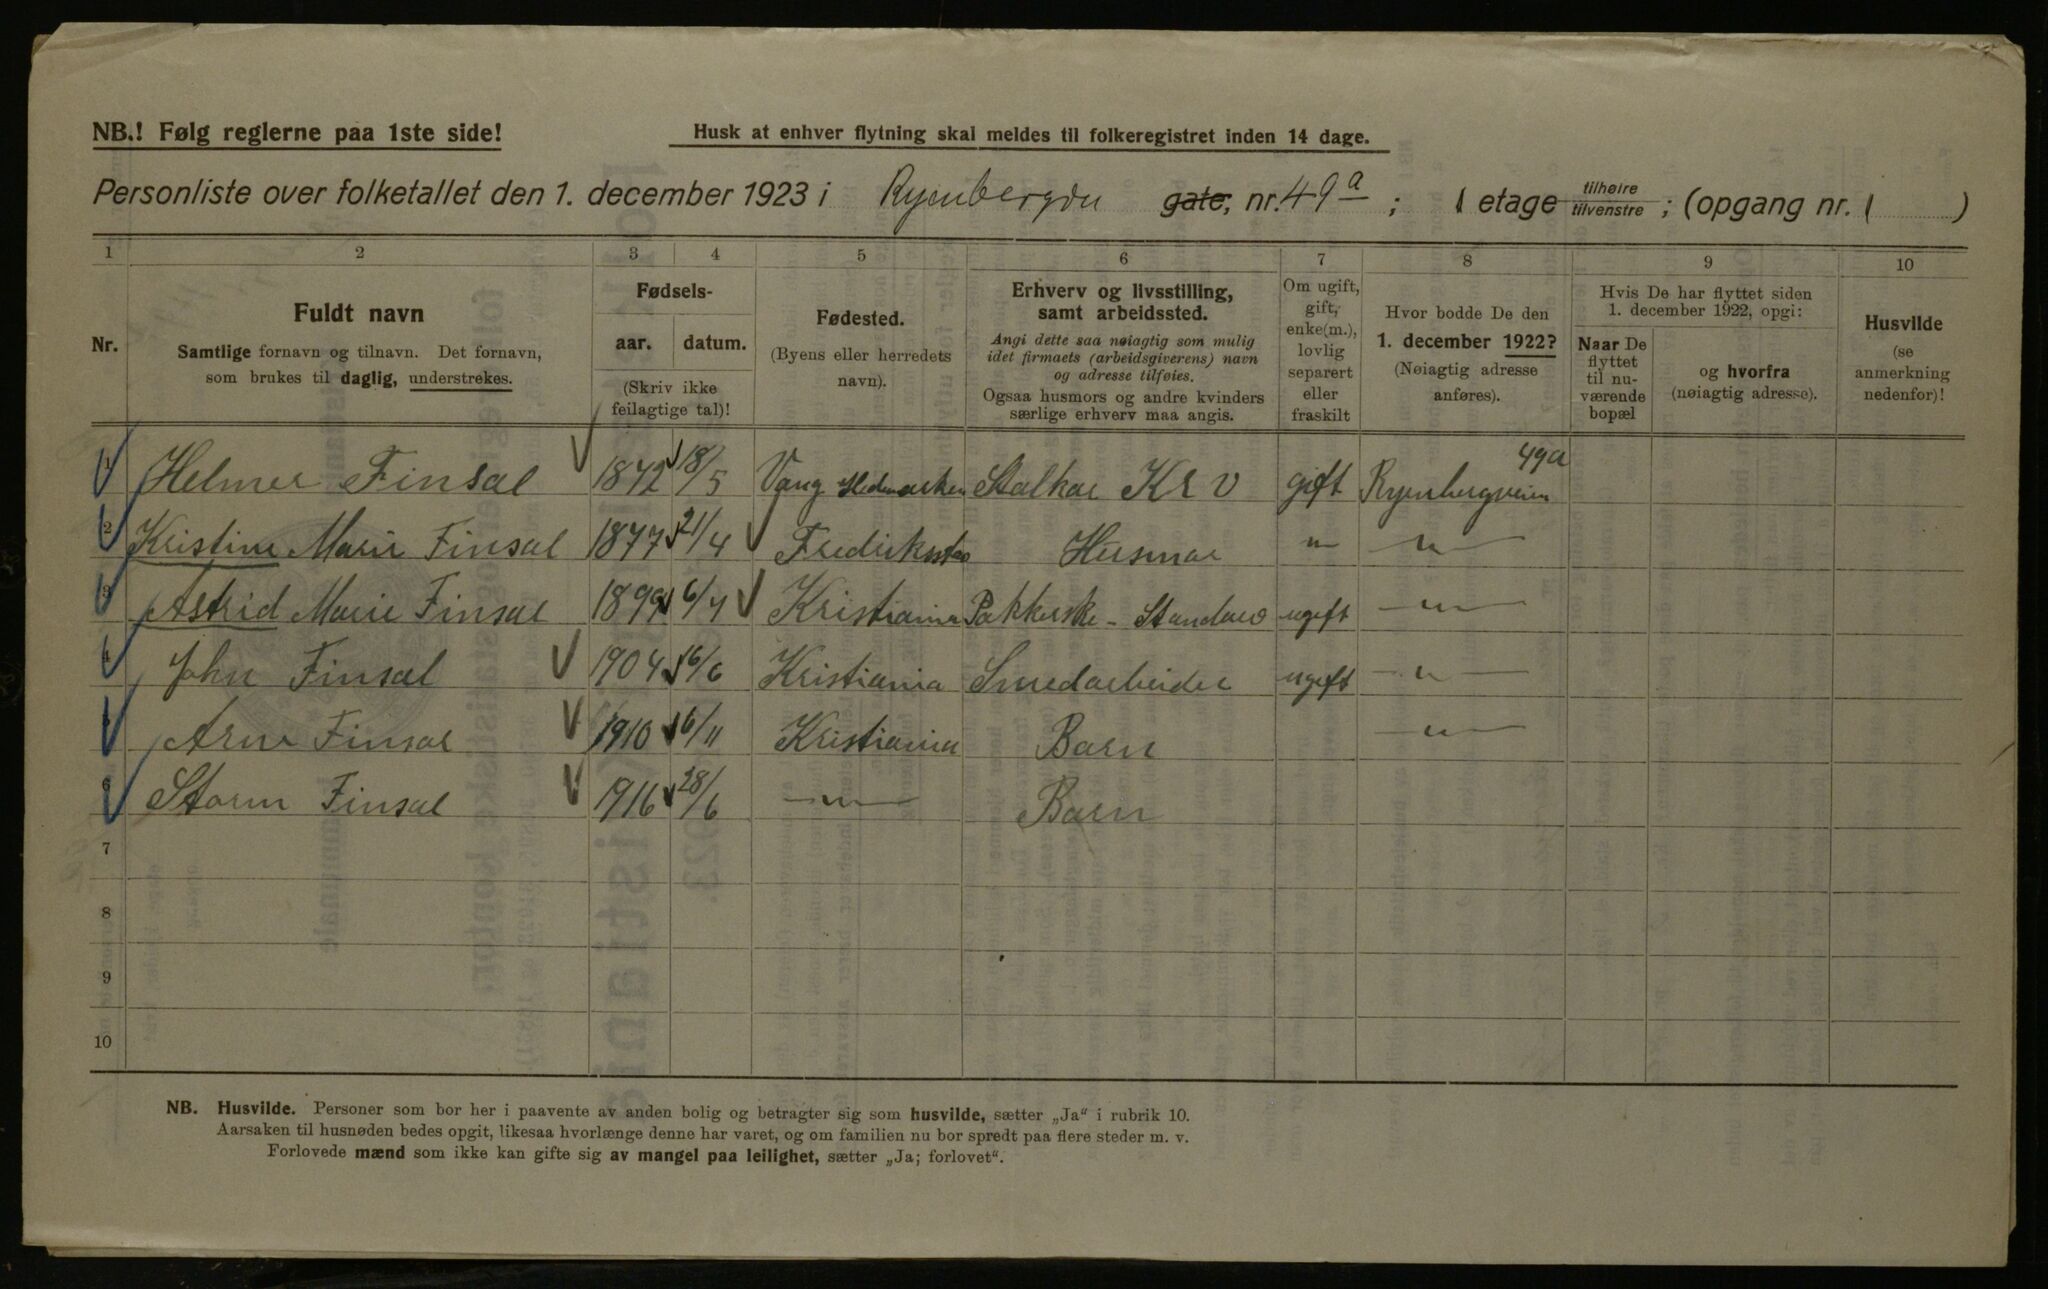 NB.! Følg reglerne paa 1ste side!
Husk at enhver flytning skal meldes til folkeregistret inden 14 dage.
Personliste over folketallet den 1. december 1923 i Ryenbergvn gate, nr. 49 a ; 1 etage tilhøire tilvenstre ; (opgang nr. 1 )
1 2 3 4 5 6 7 8 9 10
Nr.
Fuldt navn
Samtlige fornavn og tilnavn. Det fornavn,
som brukes til daglig, understrekes.
Fødsels-
aar. datum.
(Skriv ikke
feilagtige tal)!
Fødested.
(Byens eller herredets
navn).
Erhverv og livsstilling,
samt arbeidssted.
Angi dette saa nøiagtig som mulig
idet firmaets (arbeidsgiverens) navn
og adresse tilføies.
Ogsaa husmors og andre kvinders
særlige erhverv maa angis.
Om ugift,
gift,
enke(m.),
lovlig
separert
eller
fraskilt
Hvor bodde De den
1. december 1922?
(Nøiagtig adresse
anføres).
Hvis De har flyttet siden
1. december 1922, opgi:
Naar De
flyttet
til nu-
værende
bopæl
og hvorfra
(nøiagtig adresse).
Husvilde
(se
anmerkning
nedenfor)!
1 Helmer Finsal 1872 18/5 Vang Hedmarken Stalkar Kr V gift Ryenbergveien 49a
2 Kristine Marie Finsal 1877 21/4 Fredriksstad Husmor — " — — " —
3 Astrid Marie Finsal 1899 6/4 Kristiania Pakkerske - Standard ugift — " —
4 John Finsal 1904 16/6 Kristiania Smedarbeider ugift — " —
5 Arne Finsal 1910 6/11 Kristiania Barn — " —
6 Storm Finsal 1916 28/6 — " — Barn
7
8
9
10
NB. Husvilde. Personer som bor her i paavente av anden bolig og betragter sig som husvilde, sætter „Ja“ i rubrik 10.
Aarsaken til husnøden bedes opgit, likesaa hvorlænge denne har varet, og om familien nu bor spredt paa flere steder m. v.
Forlovede mænd som ikke kan gifte sig av mangel paa leilighet, sætter „Ja; forlovet“.